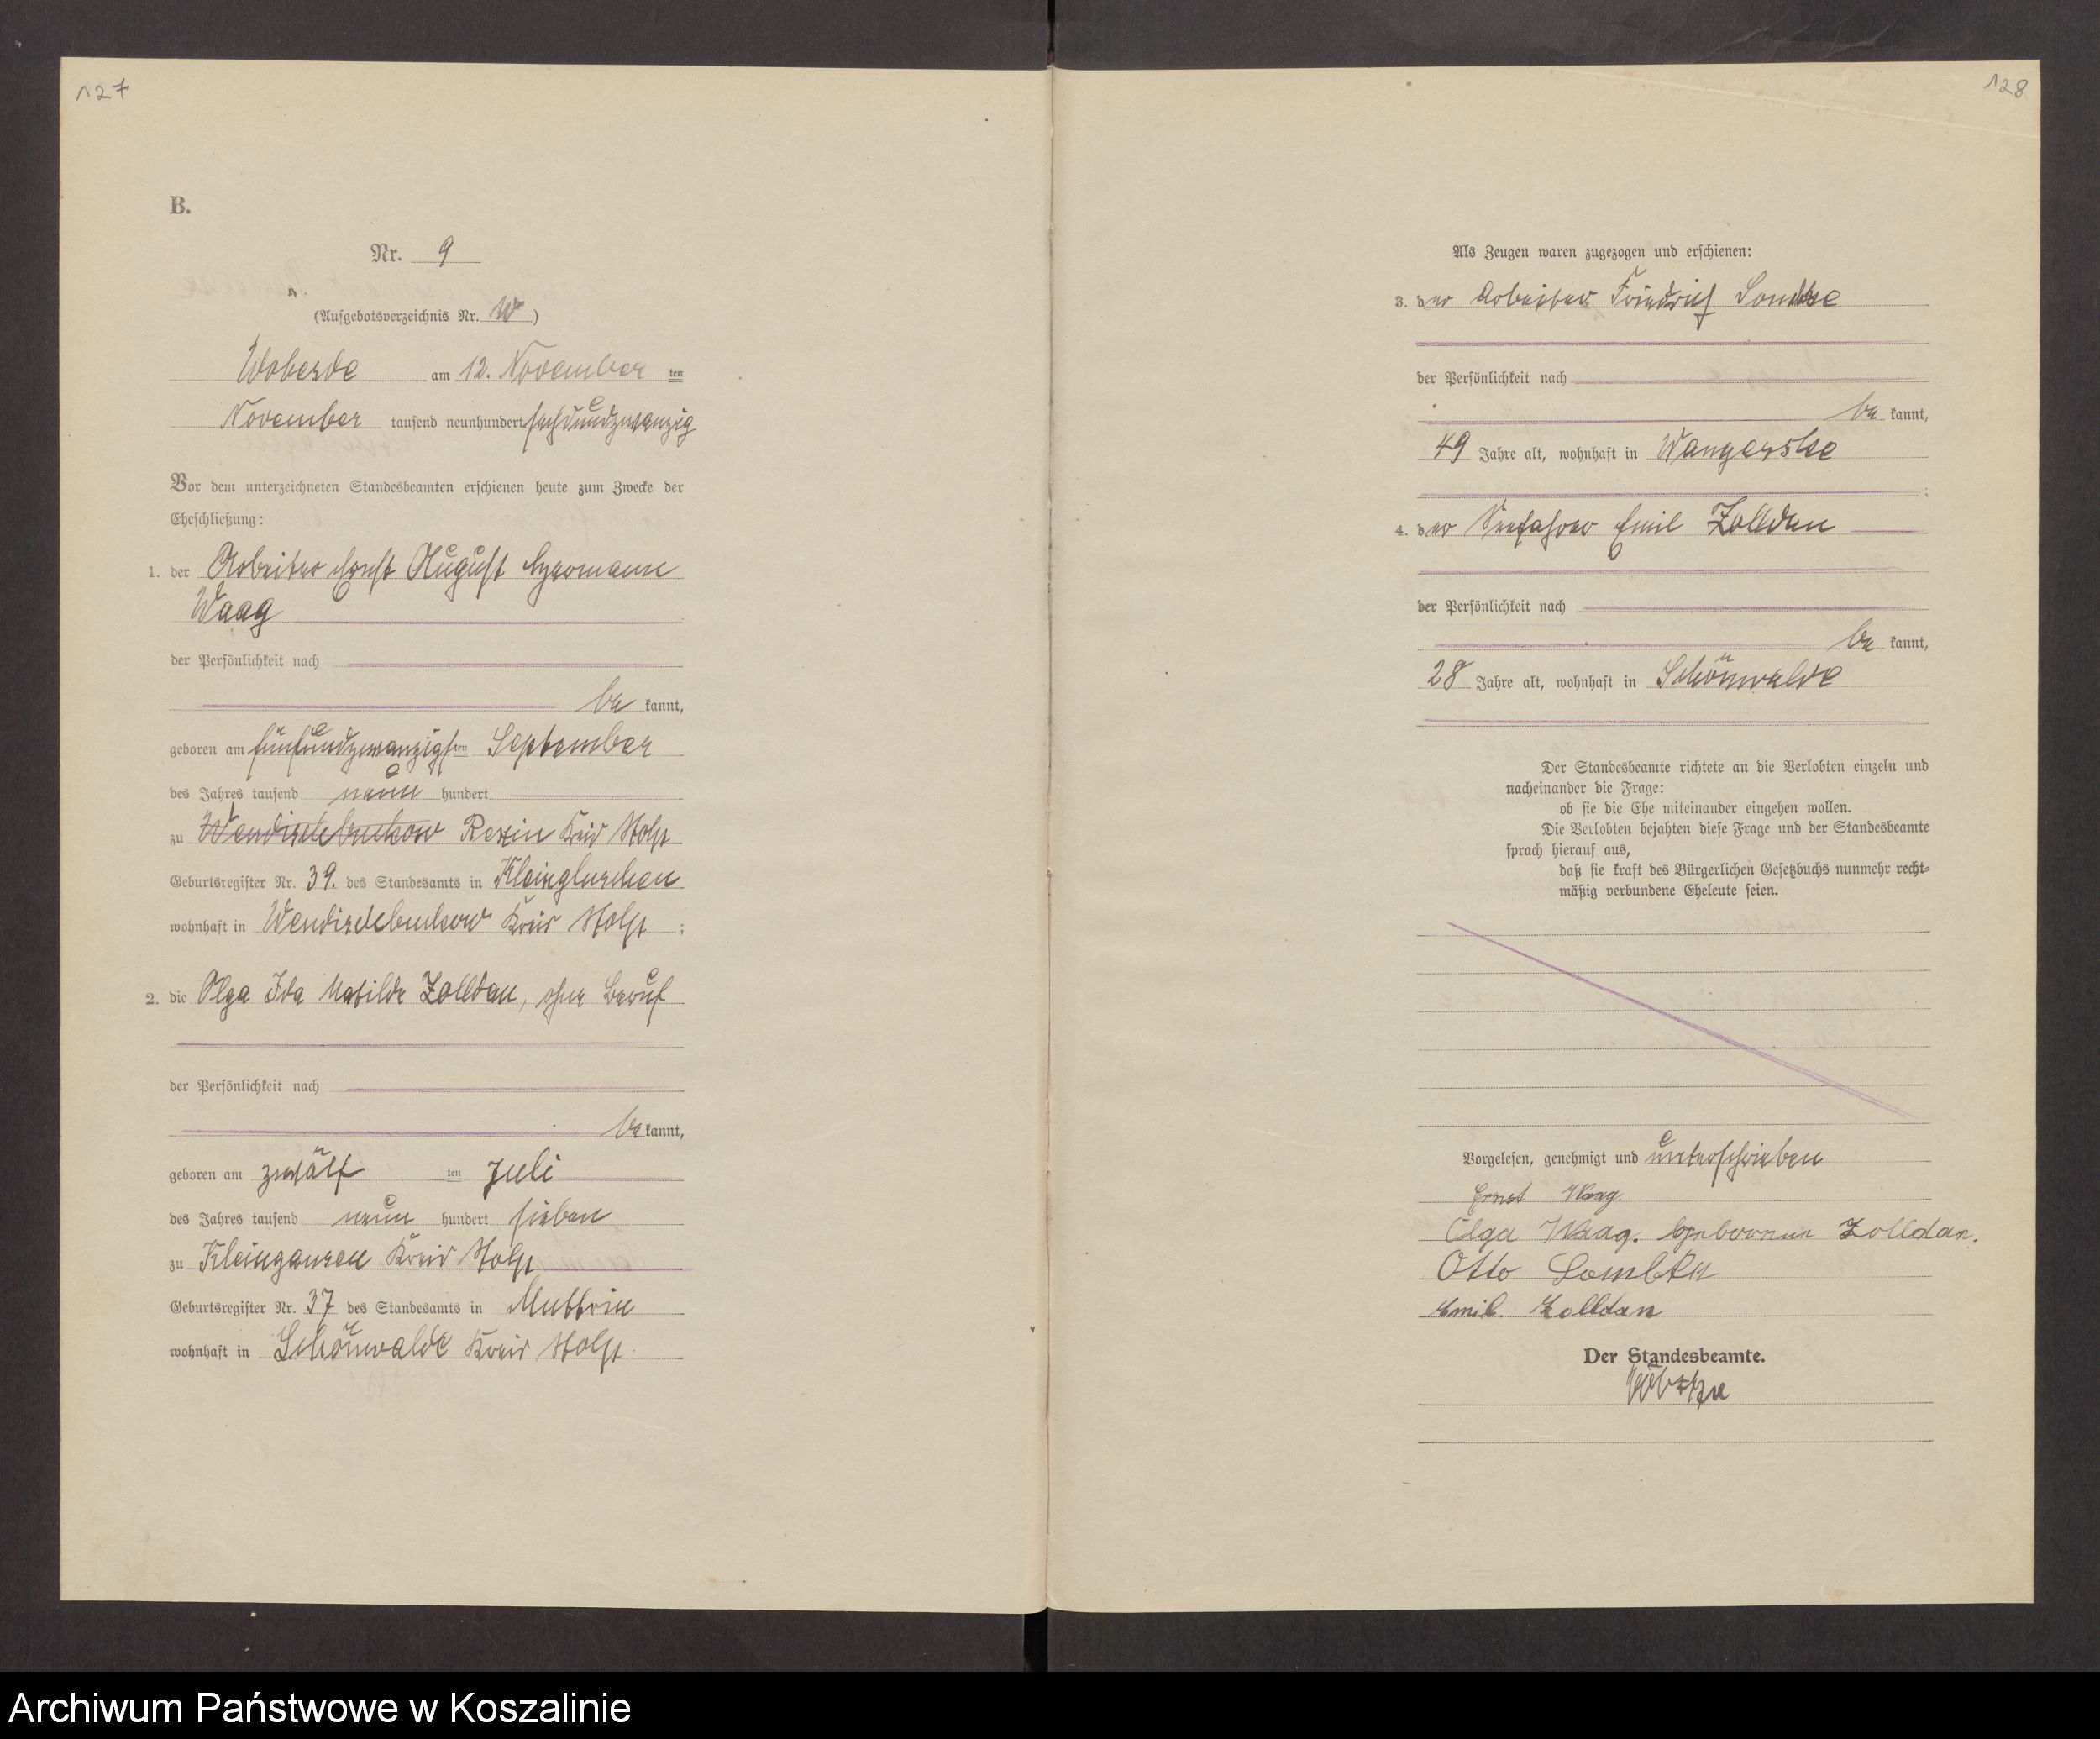 127
B.
Nr. 9
(Aufgebotsverzeichnis Nr. 10)
Woberde am 12. November ten
November tausend neunhundert sechsundzwanzig
Vor dem unterzeichneten Standesbeamten erschienen heute zum Zwecke der
Eheschließung:
1. der Arbeiter Ernst August Hermann
Waag
der Persönlichkeit nach
be kannt,
geboren am fünfundzwanzigsten September
des Jahres tausend neun hundert
zu Wendischbuckow Rexin Kreis Stolp
Geburtsregister Nr. 39. des Standesamts in Kleingluschen
wohnhaft in Wendischbuckow Kreis Stolp ;
2. die Olga Ida Matilde Zolldan, ohne Beruf
der Persönlichkeit nach
be kannt,
geboren am zwölf ten Juli
des Jahres tausend neun hundert sieben
zu Kleingansen Kreis Stolp
Geburtsregister Nr. 37 des Standesamts in Muttrin
wohnhaft in Schönwalde Kreis Stolp.
128
Als Zeugen waren zugezogen und erschienen:
3. der Arbeiter Friedrich
der Persönlichkeit nach
be kannt,
49 Jahre alt, wohnhaft in Wangerske
;
4. der Emil Zolldan
der Persönlichkeit nach
be kannt,
28 Jahre alt, wohnhaft in Schönwalde
Der Standesbeamte richtete an die Verlobten einzeln und
nacheinander die Frage:
ob sie die Ehe miteinander eingehen wollen.
Die Verlobten bejahten diese Frage und der Standesbeamte
sprach hierauf aus,
daß sie kraft des Bürgerlichen Gesetzbuchs nunmehr recht-
mäßig verbundene Eheleute seien.
Vorgelesen, genehmigt und unterschrieben
Ernst Waag.
Olga Waag. geborene Zolldan.
Otto Lembke
Emil. Zolldan
Der Standesbeamte.
Archiwum Państwowe w Koszalinie